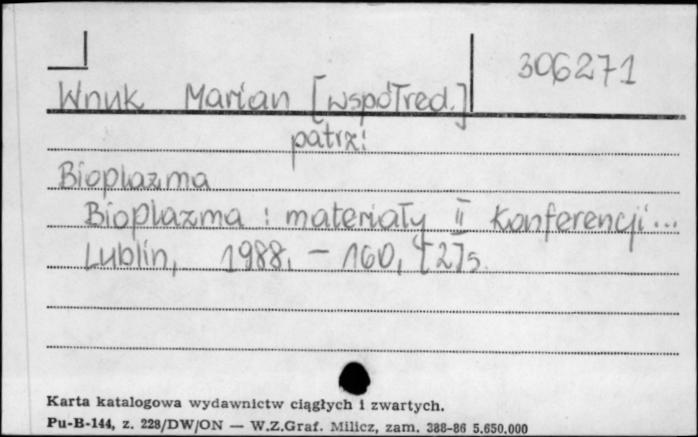 306271
Wnuk Marian [współred.]
patrz:
Bioplazma
Bioplazma : materiały II Konferencji...
Lublin, 1988. – 160, [2]s.
Karta katalogowa wydawnictw ciągłych i zwartych.
Pu-B-144, z. 228/DW/ON — W.Z.Graf. Milicz, zam. 388-86 5.650.000